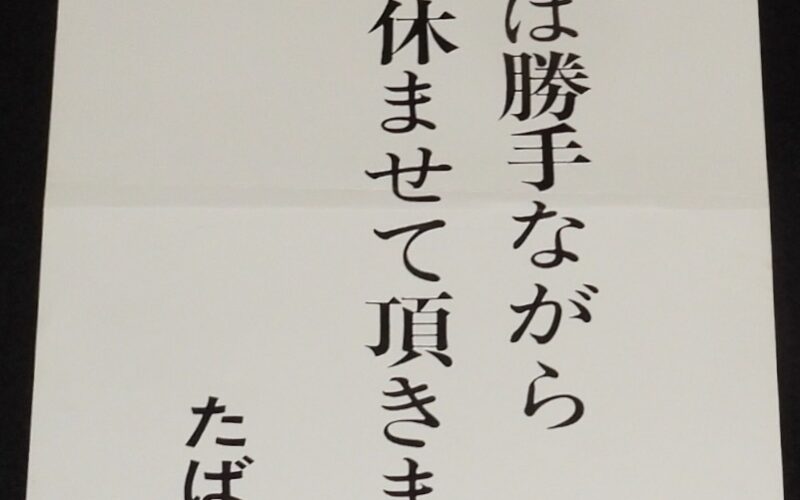 は勝手ながら
休ませて頂きま
たば